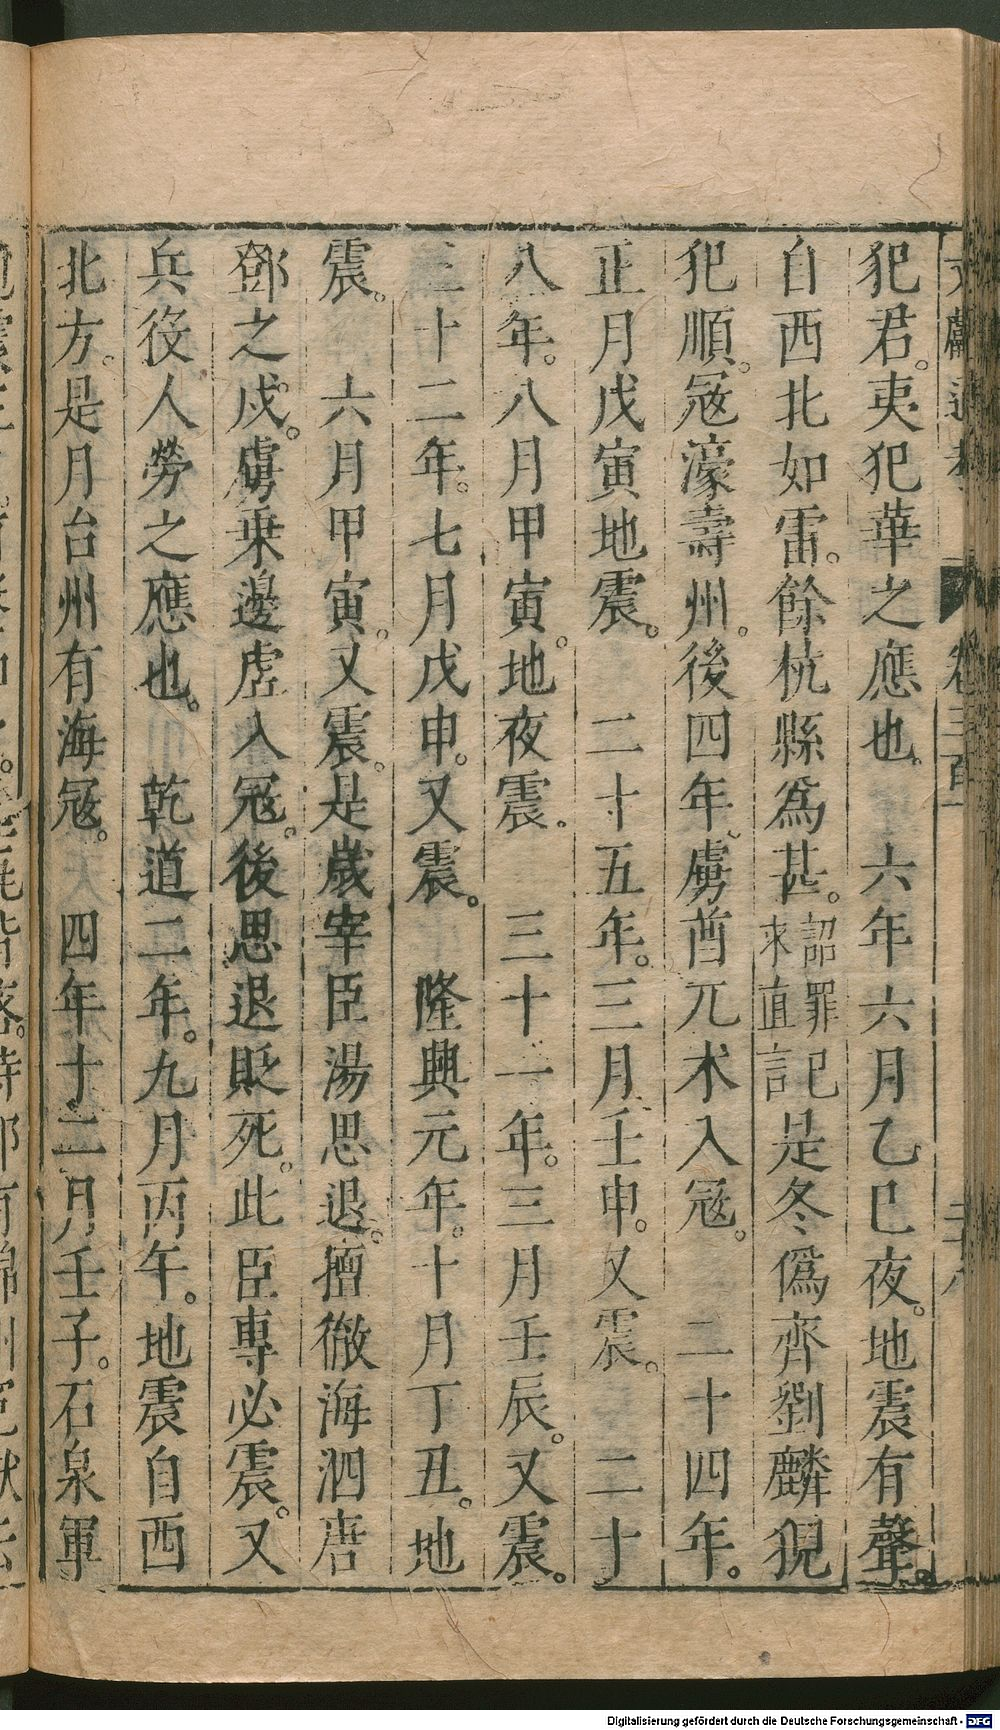 犯君。夷犯華之應也。　六年六月乙巳夜。地震有聲。
自西北如雷。餘杭縣爲甚。詔罪己求直言是冬僞齊劉麟猊
犯順。寇濠壽州。後四年虜酋兀术入寇。　二十四年。
正月戊寅地震。　二十五年。三月壬申。又震。　二十
八年。八月甲寅。地夜震。　三十一年。三月壬辰。又震。
三十二年。七月戊申。又震。　隆興元年。十月丁丑。地
震。　六月甲寅。又震。是歲宰臣湯思退。擅撤海泗唐
鄧之戍。虜乘邊虛入寇。後思退貶死。此臣專必震。又
兵役人勞之應也。　乾道二年。九月丙午。地震自西
北方。是月台州有海寇。　四年十二月壬子。石泉軍
Digitalisierung gefördert durch die Deutsche Forschungsgemeinschaft - DFG